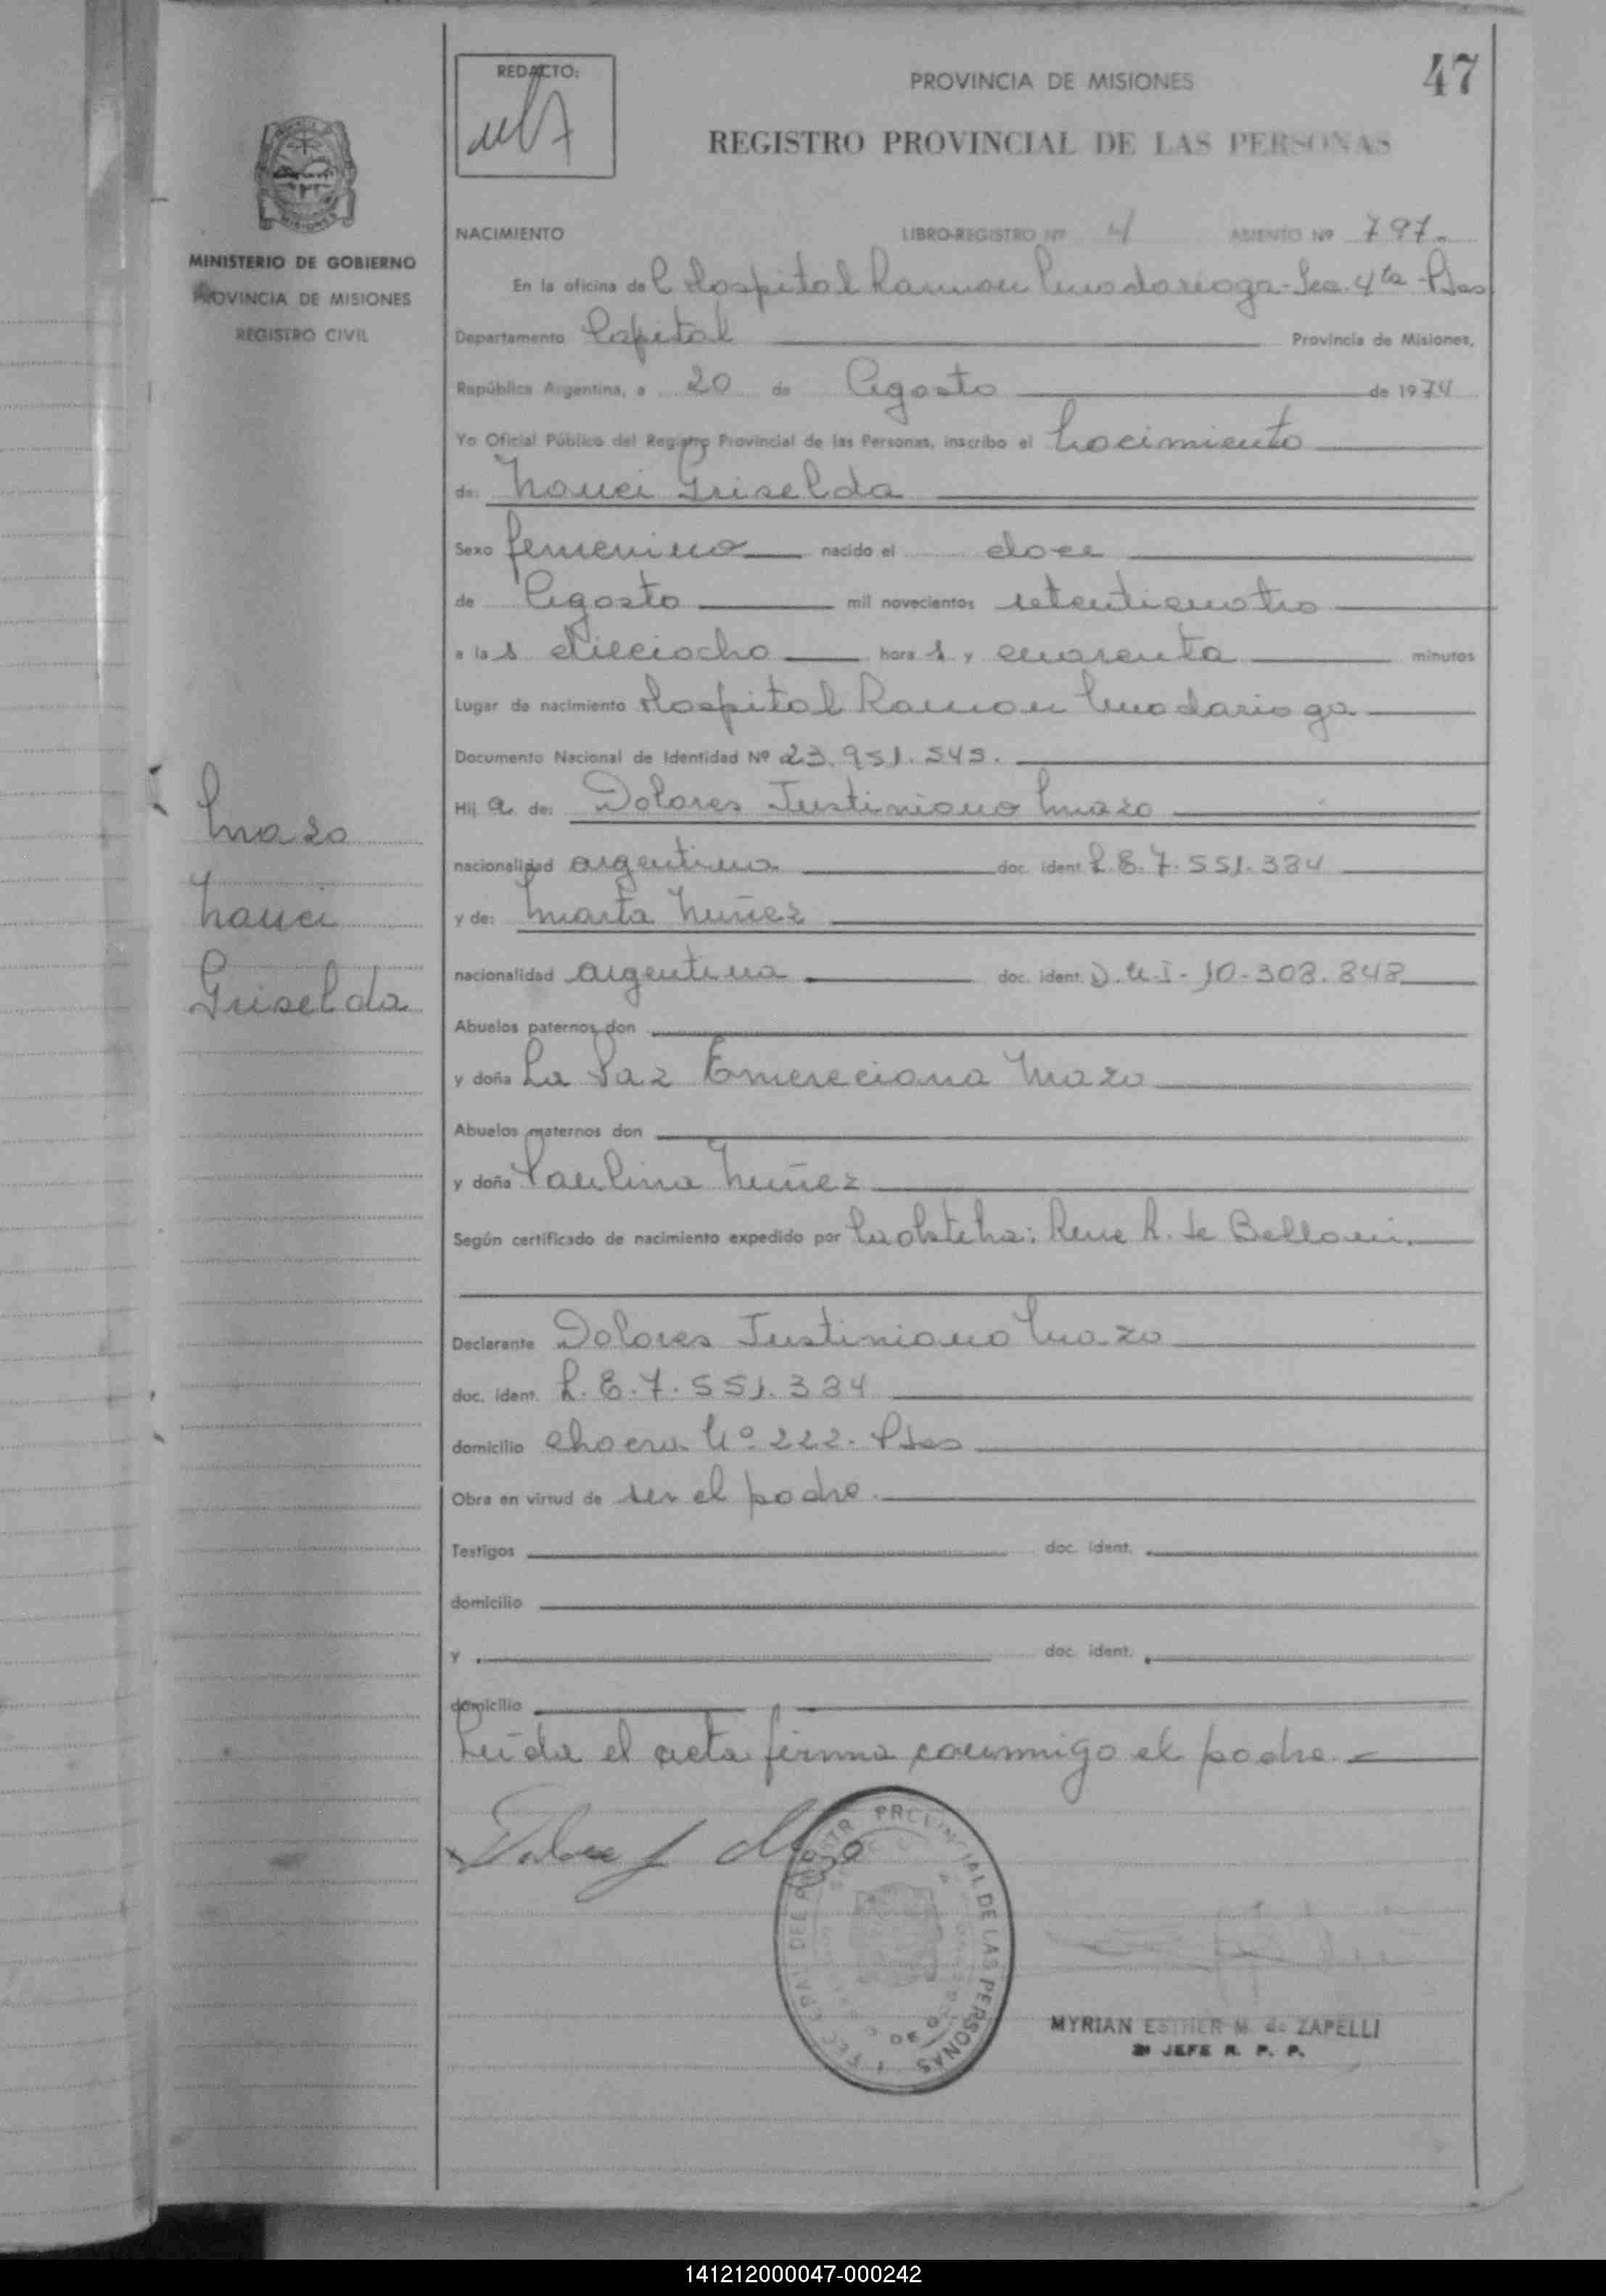 47
REDACTO:
PROVINCIA DE MISIONES
REGISTRO PROVINCIAL DE LAS PERSONAS
MINISTERIO DE GOBIERNO
PROVINCIA DE MISIONES
REGISTRO CIVIL
NACIMIENTO LIBRO-REGISTRO Nº 4 ASIENTO Nº 797.
En la oficina del Hospital Ramon Madariaga - Sec. 4ta - Pdas
Departamento Capital Provincia de Misiones,
República Argentina, a 20 de Agosto de 1974
Yo Oficial Público del Registro Provincial de las Personas, inscribo el Nacimiento
de: Nanci Griselda
Sexo femenino nacido el doce
de Agosto mil novecientos setenticuatro
a las dieciocho horas y cuarenta minutos
Lugar de nacimiento Hospital Ramon Madariaga
Documento Nacional de Identidad Nº 23.951.545.
Hija de: Dolores Justiniano Mazo
nacionalidad argentina doc. ident. L.E. 7.551.384
y de: Marta Nuñez
nacionalidad argentina doc. ident. D.N.I - 10-308.848
Abuelos paternos don
y doña La Paz Emereciana Mazo
Abuelos maternos don
y doña Paulina Nuñez
Según certificado de nacimiento expedido por la obstetra: Rene R. de Belloni.
Declarante Dolores Justiniano Mazo
doc. ident. L.E. 7.551.384
domicilio chacra Nº 222 - Pdas
Obra en virtud de ser el padre.
Testigos doc. ident.
domicilio
y doc. ident.
domicilio
Leída el acta firma conmigo el padre
Mazo
Nanci
Griselda
PROVINCIAL DE LAS PERSONAS
MYRIAN ESTHER M. de ZAPELLI
JEFE R. P. P.
141212000047-000242